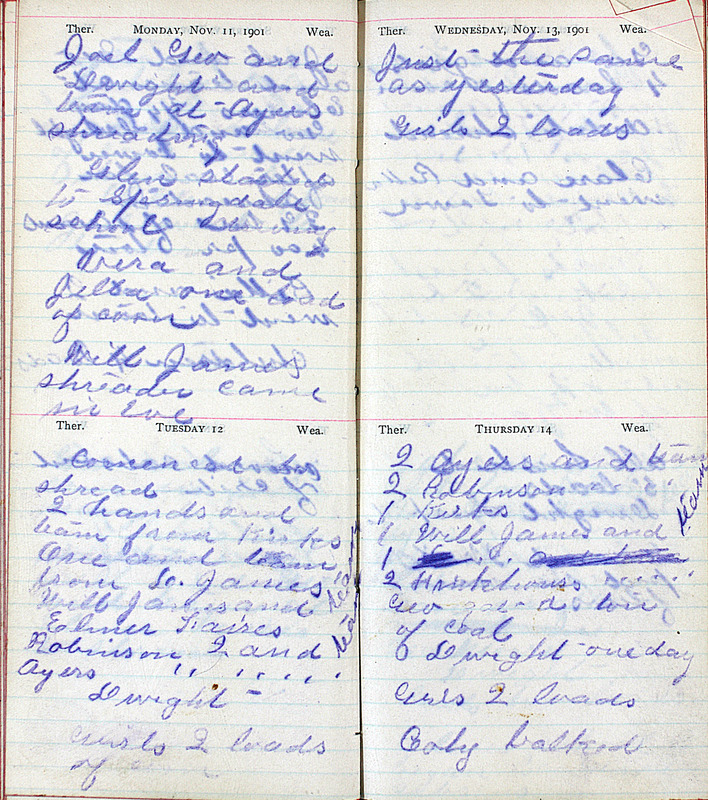 Ther. MONDAY, NOV. 11, 1901 Wea.
Joel Geo and
Dwight and
team at Ayers
shreading
Glen started
to Springdale
school
Vera and
Jetta one load
of corn
Will James
shreader came
in Eve
Ther. TUESDAY 12 Wea.
Comenced to
shread
2 hands and
team from Kirks
One and team
from D. James
Will James and team
Elmer Faires
Robinson 2 and team
Ayers " " " " "
Dwight -
Girls 2 loads
of
Ther. WEDNESDAY, NOV. 13, 1901 Wea.
Just the same
as yesterday
Girls 2 loads
Ther. THURSDAY 14 Wea.
2 Ayers and team
2 Robinson "
1 Kirks "
1 Will James and team
1
2 " "
Geo got a ton
of coal
Dwight one day
Girls 2 loads
Coby balked